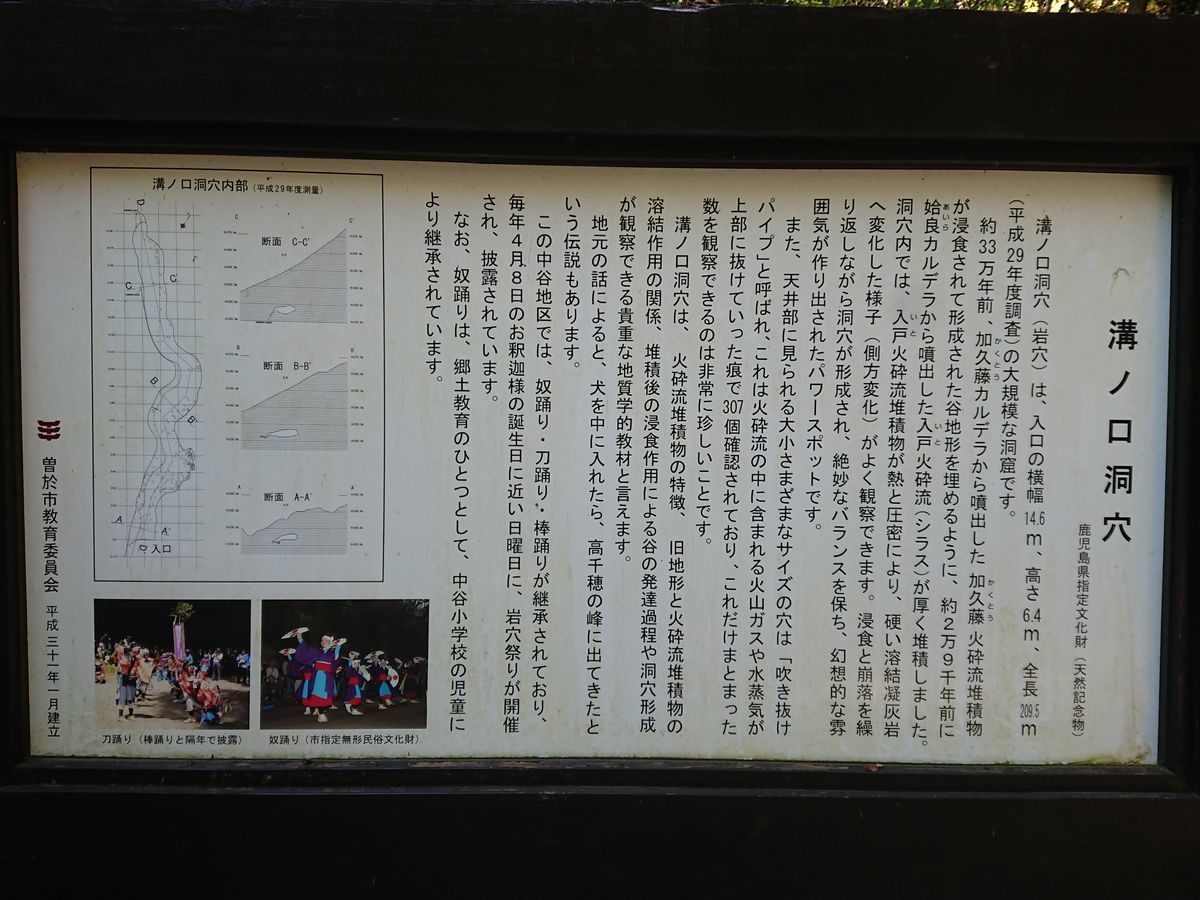 溝ノ口洞穴
鹿児島県指定文化財（天然記念物）
溝ノ口洞穴（岩穴）は、入口の横幅14.6m、高さ6.4m、全長209.5m
（平成29年度調査）の大規模な洞窟です。
約33万年前、加久藤カルデラから噴出した加久藤火砕流堆積物
かくとう
かくとう
が浸食されて形成された谷地形を埋めるように、約２万９千年前に
姶良カルデラから噴出した入戸火砕流（シラス）が厚く堆積しました。
あいら
いと
洞穴内では、入戸火砕流堆積物が熱と圧密により、硬い溶結凝灰岩
いと
へ変化した様子（側方変化）がよく観察できます。浸食と崩落を繰
り返しながら洞穴が形成され、絶妙なバランスを保ち、幻想的な雰
囲気が作り出されたパワースポットです。
また、天井部に見られる大小さまざまなサイズの穴は「吹き抜け
パイプ」と呼ばれ、これは火砕流の中に含まれる火山ガスや水蒸気が
上部に抜けていった痕で307個確認されており、これだけまとまった
数を観察できるのは非常に珍しいことです。
溝ノ口洞穴は、火砕流堆積物の特徴、旧地形と火砕流堆積物の
溶結作用の関係、堆積後の浸食作用による谷の発達過程や洞穴形成
が観察できる貴重な地質学的教材と言えます。
地元の話によると、犬を中に入れたら、高千穂の峰に出てきたと
いう伝説もあります。
この中谷地区では、奴踊り・刀踊り・棒踊りが継承されており、
毎年４月８日のお釈迦様の誕生日に近い日曜日に、岩穴祭りが開催
され、披露されています。
なお、奴踊りは、郷土教育のひとつとして、中谷小学校の児童に
より継承されています。
溝ノ口洞穴内部（平成29年度測量）
断面 C-C'
断面 B-B'
断面 A-A'
D
C
C'
B
B'
A
A'
入口
刀踊り（棒踊りと隔年で披露）
奴踊り（市指定無形民俗文化財）
曽於市教育委員会 平成三十一年一月建立